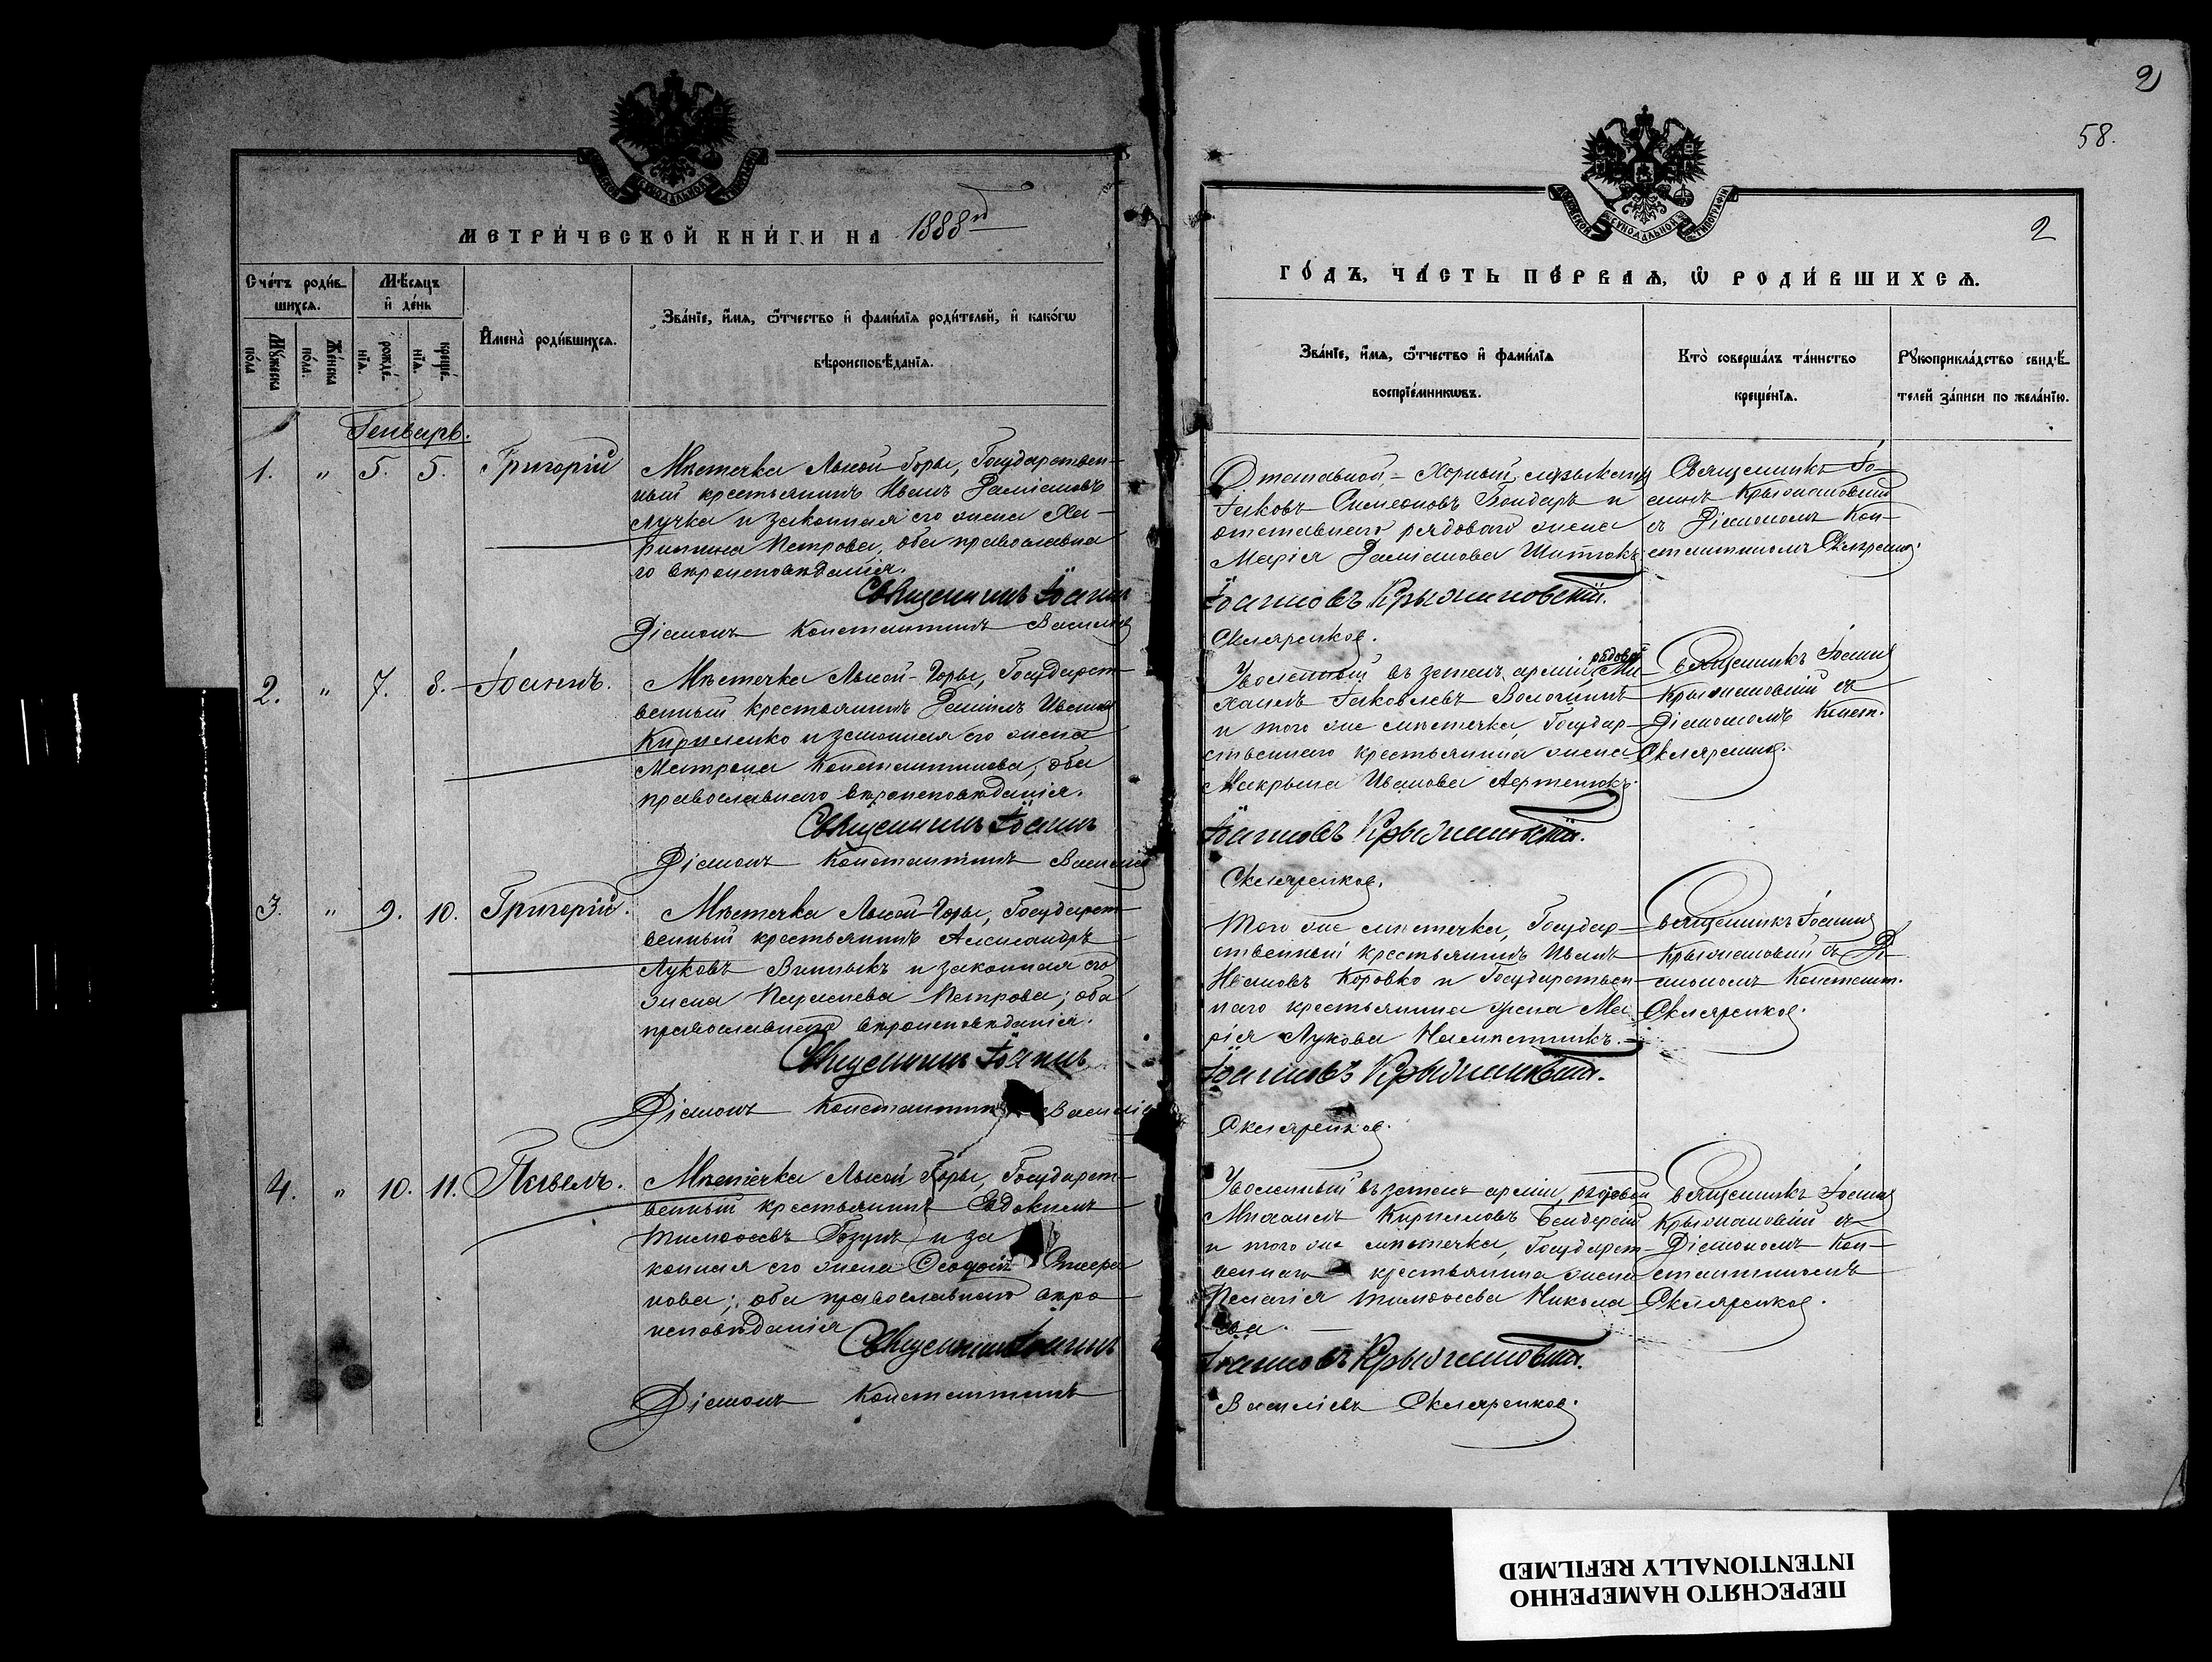 2
58.
2
МЕТРИ́ЧЕСКОЙ КНИ́ГИ НА 1888й
ГО́ДЪ, ЧА́СТЬ ПЕ́РВАѦ, Ѽ РОДИ́ВШИХСѦ.
Сче́тъ роди́в-
шихсѧ.
Мꙋ́жеска по́ла
Же́нска по́ла.
Мѣ́сѧцъ
и҆ де́нь
рожде́-
нїѧ.
креще́-
нїѧ.
И҆мена̀ роди́вшихсѧ.
Зва́нїе, и҆́мѧ, ѻ҆́тчество и҆ фами́лїѧ роди́телей, и҆ како́гѡ
вѣроисповѣ́данїѧ.
Зва́нїе, и҆́мѧ, ѻ҆́тчество и҆ фами́лїѧ
воспрїе́мникѡвъ.
Кто̀ соверша́лъ та́инство
креще́нїѧ.
Рꙋкоприкла́дство свидѣ́-
телей за́писи по жела́нїю.
Генварь.
1. " 5. 5. Григорій
Мѣстечка Лысой-Горы, Государствен-
ный крестьянинъ Иванъ Даміановъ
Лучка и законная его жена Ха-
ритина Петрова, оба православна
го вѣроисповѣданія.
Священникъ Іоаннъ
Діаконъ Константинъ Василіевъ
Отставной-Хорный музыкантъ
Іаковъ Симеоновъ Бондарь и
отставнаго рядоваго жена
Марія Даміанова Шитокъ.
Іоанновъ Крыжановскій.
Скляренковъ.
Священникъ Іо-
аннъ Крыжановскій
съ Діакономъ Кон-
стантиномъ Скляренко.
2. " 7. 8. Іоаннъ.
Мѣстечка Лысой-Горы, Государст-
венный крестьянинъ Даніилъ Ивановъ
Кириленко и законная его жена
Матрона Константинова, оба
православнаго вѣроисповѣданія.
Священникъ Іоаннъ
Діаконъ Константинъ Василіевъ
Уволенный въ запасъ арміи рядовой Ми-
хаилъ Іаковлевъ Волошинъ
и того же мѣстечка, Государ-
ственнаго крестьянина жена
Макрына Иванова
Іоанновъ Крыжановскій.
Скляренковъ.
Священникъ Іоаннъ
Крыжановскій съ
Діакономъ Конст.
Скляренко.
3. " 9. 10. Григорій.
Мѣстечка Лысой-Горы, Государст-
венный крестьянинъ Александръ
Луковъ и законная его
жена Параскева Петрова; оба
православнаго вѣроисповѣданія.
Священникъ Іоаннъ
Діаконъ Константинъ Василіевъ
Того же мѣстечка, Государ-
ственный крестьянинъ Иванъ
Ивановъ Коровко и Государствен-
наго крестьянина жена Ма-
рія Лукова
Іоанновъ Крыжановскій.
Скляренковъ.
Священникъ Іоаннъ
Крыжановскій съ Ді-
акономъ Констант.
Скляренковъ.
4. " 10. 11. Павелъ.
Мѣстечка Лысой Горы, Государст-
венный крестьянинъ Евдокимъ
Тимоѳеевъ и за
конная его жена
нова; оба православнаго вѣро
исповѣданія
Священникъ Іоаннъ
Діаконъ Константинъ
Уволенный въ запасъ арміи, рядовой
Михаилъ Кирилловъ Бендерскій
и того же мѣстечка, Государст-
веннаго крестьянина жена
Пелагія Тимоѳеева Никола
ева.
Іоанновъ Крыжановскій.
Василіевъ Скляренковъ.
Священникъ Іоаннъ
Крыжановскій съ
Діакономъ Кон-
стантиномъ
Скляренковъ.
ПЕРЕСНЯТО НАМЕРЕННО
INTENTIONALLY REFILMED